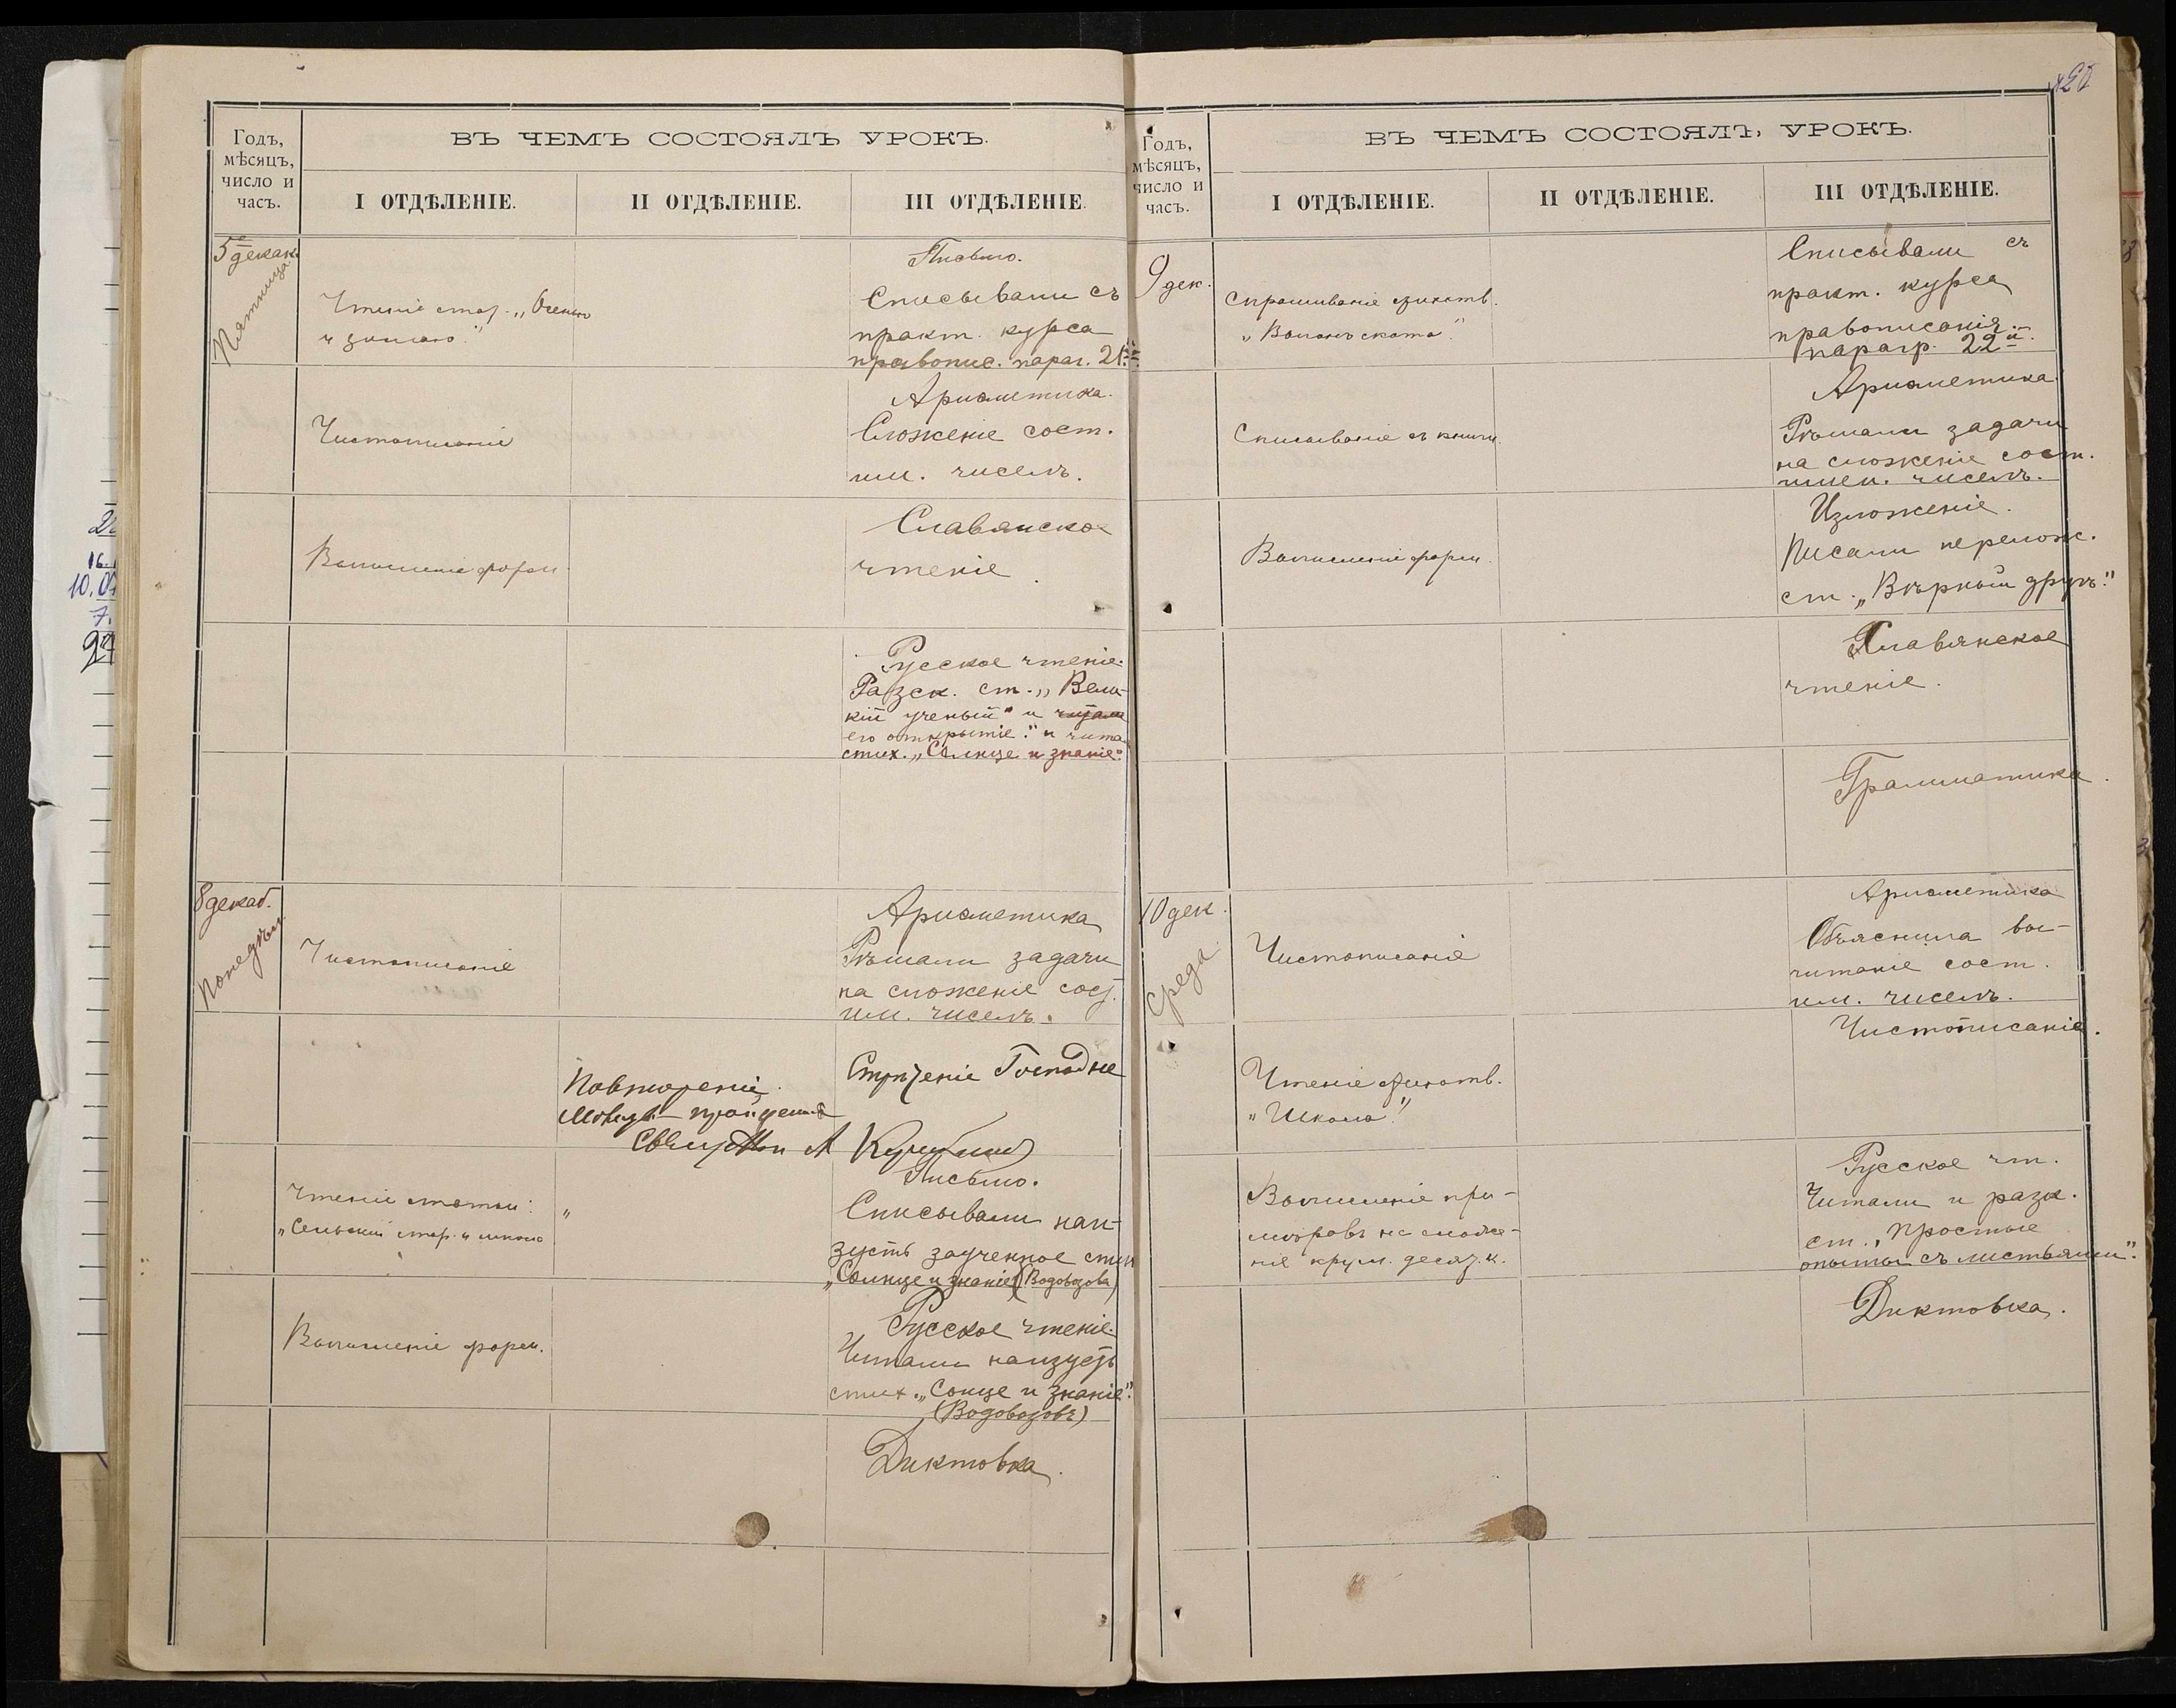 Годъ,
мѣсяцъ,
число и
часъ.
ВЪ ЧЕМЪ СОСТОЯЛЪ УРОКЪ.
I ОТДѢЛЕНІЕ.
II ОТДѢЛЕНІЕ.
III ОТДѢЛЕНІЕ.
5е декаб.
Пятница
Чтеніе стат. „Осенью
и зимою."
Письмо.
Списывали съ
практ. курса
правопис. параг. 21й.
Чистописаніе
Ариѳметика.
Сложеніе сост.
им. чиселъ.
Вычисленіе форм.
Славянское
чтеніе.
Русское чтеніе.
Разск. ст. „Вели-
кій ученый" и читали
его открытіе." и чита.
стих. „Солнце и знаніе."
8 декаб.
Понедѣл.
Чистописаніе
Ариѳметика
Рѣшали задачи
на сложеніе сост.
им. чиселъ.
Повтореніе
молитв пройденныхъ
Срѣтеніе Господне
Свящ. А
Чтеніе статьи:
„Сельскій
"
Письмо.
Списывали наи-
зусть заученное стих
„Солнце и знаніе" (Водовозова)
Вычисленіе форм.
Русское чтеніе.
Читали наизусть
стих. „Сонце и знаніе".
(Водовозовъ)
Диктовка.
Годъ,
мѣсяцъ,
число и
часъ.
ВЪ ЧЕМЪ СОСТОЯЛЪ, УРОКЪ.
I ОТДѢЛЕНІЕ.
II ОТДѢЛЕНІЕ.
III ОТДѢЛЕНІЕ.
9 дек.
Спрашиваніе
Списывали съ
практ. курса
правописанія.
парагр. 22й.
Списываніе съ книги.
Ариѳметика.
Рѣшали задачи
на сложеніе сост.
имен. чиселъ.
Вычисленіе форм.
Изложеніе.
Писали перелож.
ст. „Вѣрный другъ."
Славянское
чтеніе.
Грамматика.
10 дек.
Среда
Чистописаніе
Ариѳметика
Объяснила вы-
читаніе сост.
им. чиселъ.
Чтеніе стихотв.
„Школа"
Чистописаніе.
Вычисленіе при-
мѣровъ на сложе-
ніе кругл. десятк.
Русское чт.
Читали и разск.
ст. „Простые
опыты съ листьями".
Диктовка.